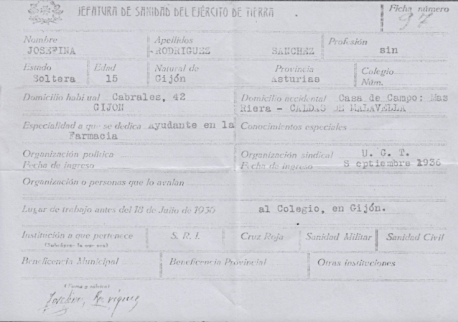 JEFATURA DE SANIDAD DEL EJÉRCITO DE TIERRA
Ficha número
97
Nombre Apellidos Profesión
JOSEFINA RODRIGUEZ SANCHEZ sin
Estado Edad Natural de Provincia Colegio
Soltera 15 Gijón Asturias Núm.
Domicilio habitual Cabrales, 42 Domicilio accidental Casa de Campo: Mas
GIJON Riera - CALDAS DE MALAVELLA
Especialidad a que se dedica ayudante en la Conocimientos especiales
Farmacia
Organización política Organización sindical U. G. T.
Fecha de ingreso Fecha de ingreso 8 eptiembre 1936
Organización o personas que lo avalan
Lugar de trabajo antes del 18 de Julio de 1936 al Colegio, en Gijón.
Institución a que pertenece S. R. I. Cruz Roja Sanidad Militar Sanidad Civil
Beneficencia Municipal Beneficencia Provincial Otras instituciones